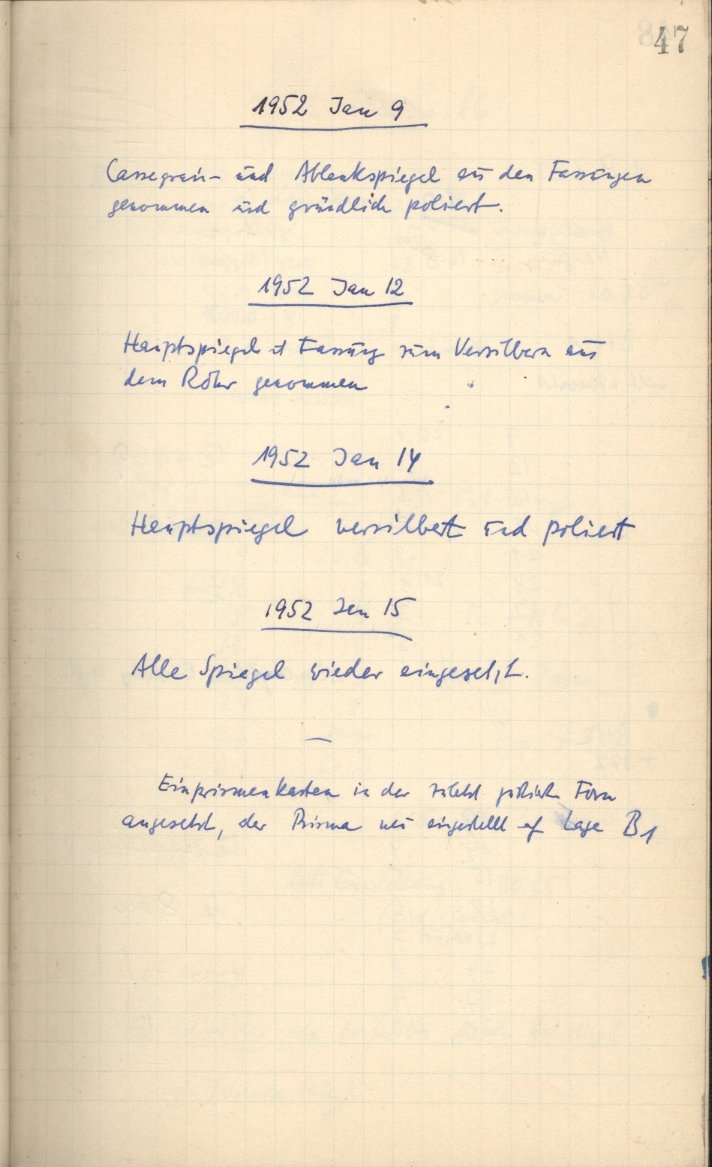 47
1952 Jan 9
Cassegrain- und Ablenkspiegel aus den Fassungen
genommen und gründlich poliert.
1952 Jan 12
Hauptspiegel Fassung zum Versilbern aus
dem Rohr genommen
1952 Jan 14
Hauptspiegel versilbert und poliert
1952 Jan 15
Alle Spiegel wieder eingesetzt.
—
Einprismenkasten in der zuletzt Form
angesetzt, der Prisma neu eingestellt auf Lage B1